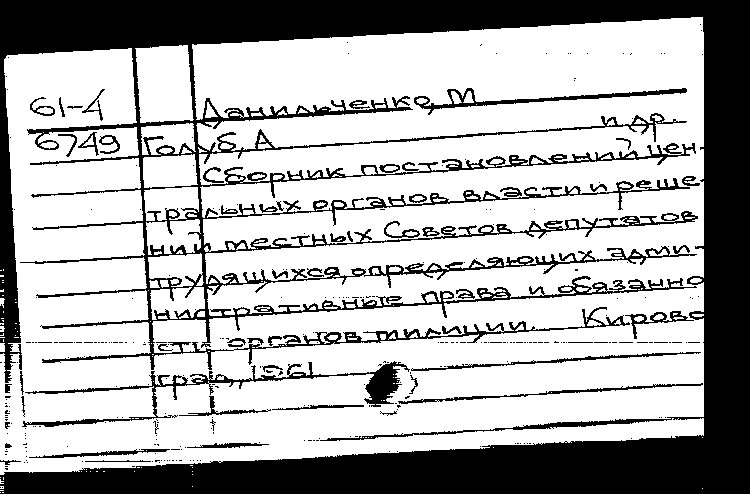 61-4 Данильченко, М
6749 Голуб, А и др.
Сборник постановлений цен-
тральных органов власти и реше-
ний местных Советов депутатов
трудящихся, определяющих адми-
нистративные права и обязанно
сти органов милиции. Кирово
град, 1961